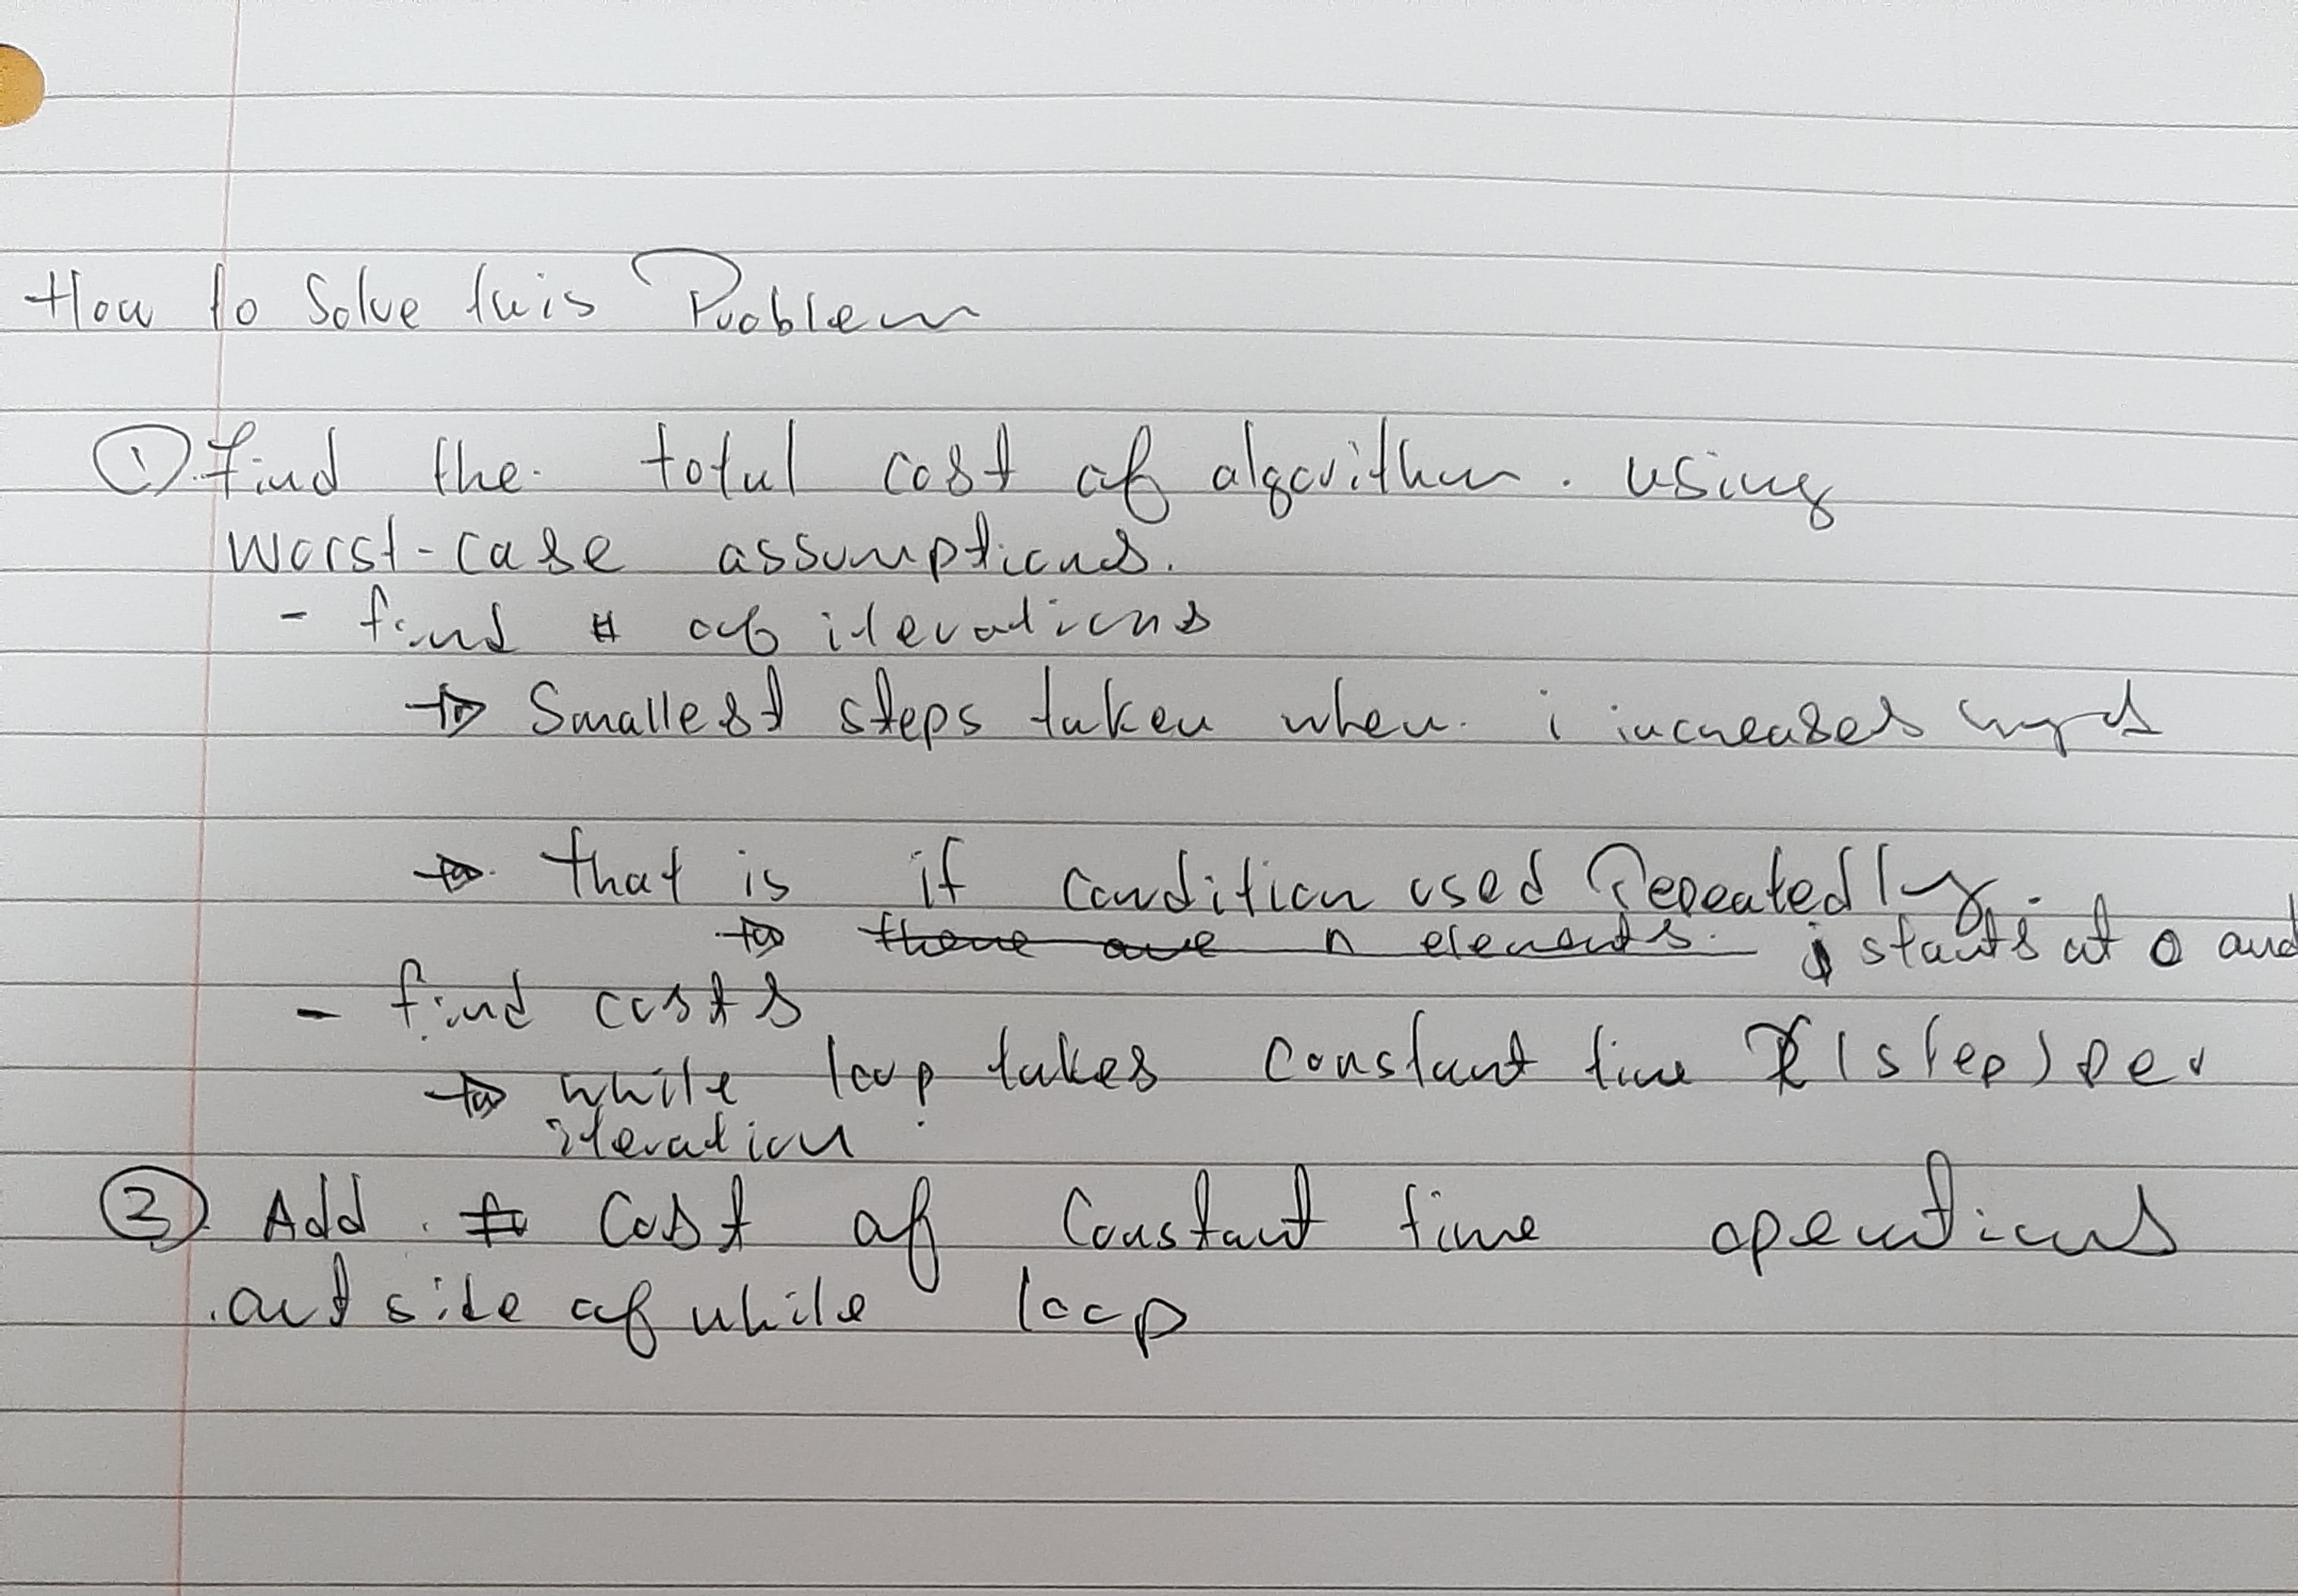 How to Solve this Problem
① Find the total cost of algorithm. using
worst-case assumptions.
- find # of iterations
→ Smallest steps taken when i increases
→ that is if condition used repeatedly.
→ there are n elements. i starts at 0 and
- find costs
→ while loop takes constant time (step) per
iteration
② Add cost of constant time operations
outside of while loop